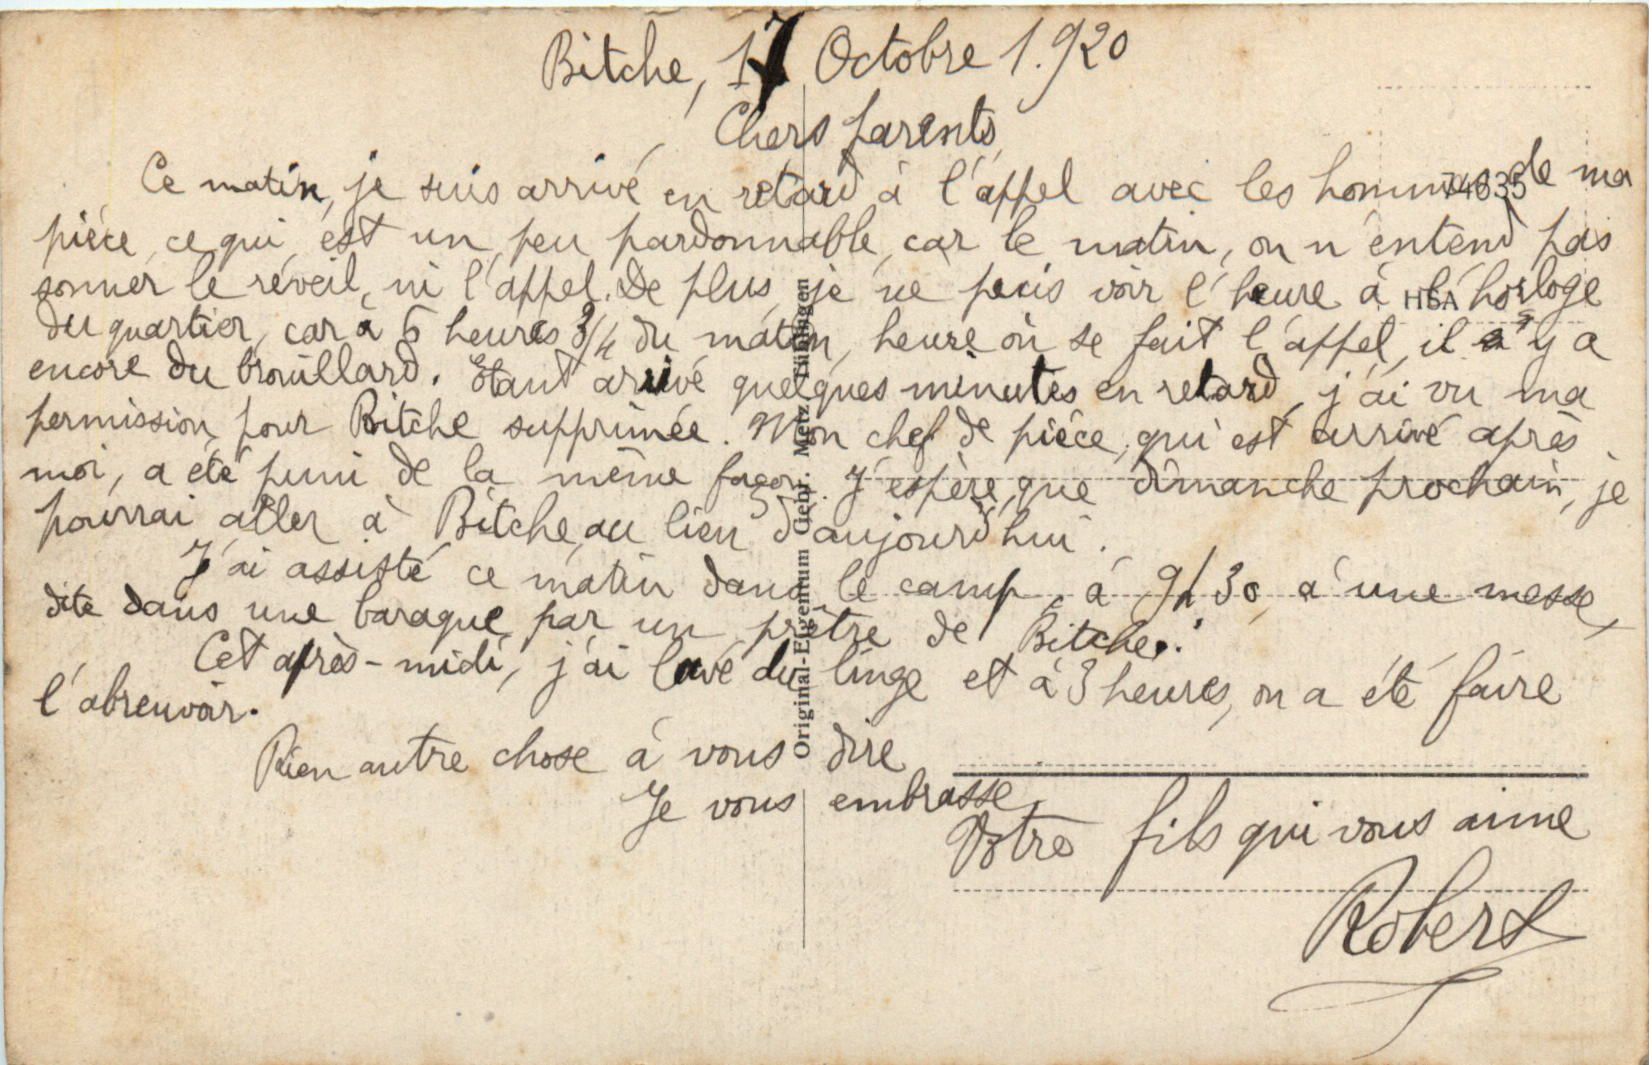 Bitche, 17 Octobre 1.920
Chers parents
Ce matin, je suis arrivé en retard à l'appel avec les hommes de ma
74635
pièce, ce qui est un peu pardonnable, car le matin, on n'entend pas
sonner le réveil, ni l'appel. De plus je ne puis voir l'heure à l'horloge
HSA
du quartier, car à 6 heures 3/4 du matin, heure où se fait l'appel, il y a
encore du brouillard. Etant arrivé quelques minutes en retard, j'ai vu ma
permission pour Bitche supprimée. Mon chef de pièce, qui est arrivé après
moi, a été puni de la même façon. J'espère que dimanche prochain, je
pourrai aller à Bitche au lieu d'aujourd'hui.
J'ai assisté ce matin dans le camp, à 9h30, à une messe,
dite dans une baraque par un prêtre de Bitche.
Cet après-midi, j'ai lavé du linge et à 3 heures, on a été faire
l'abreuvoir.
Rien autre chose à vous dire
Je vous embrasse,
Votre fils qui vous aime
Robert
Original-Eigentum Gebr. Metz Tübingen